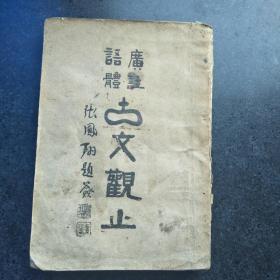 廣註
語體
古文觀止
張鳳翔題簽